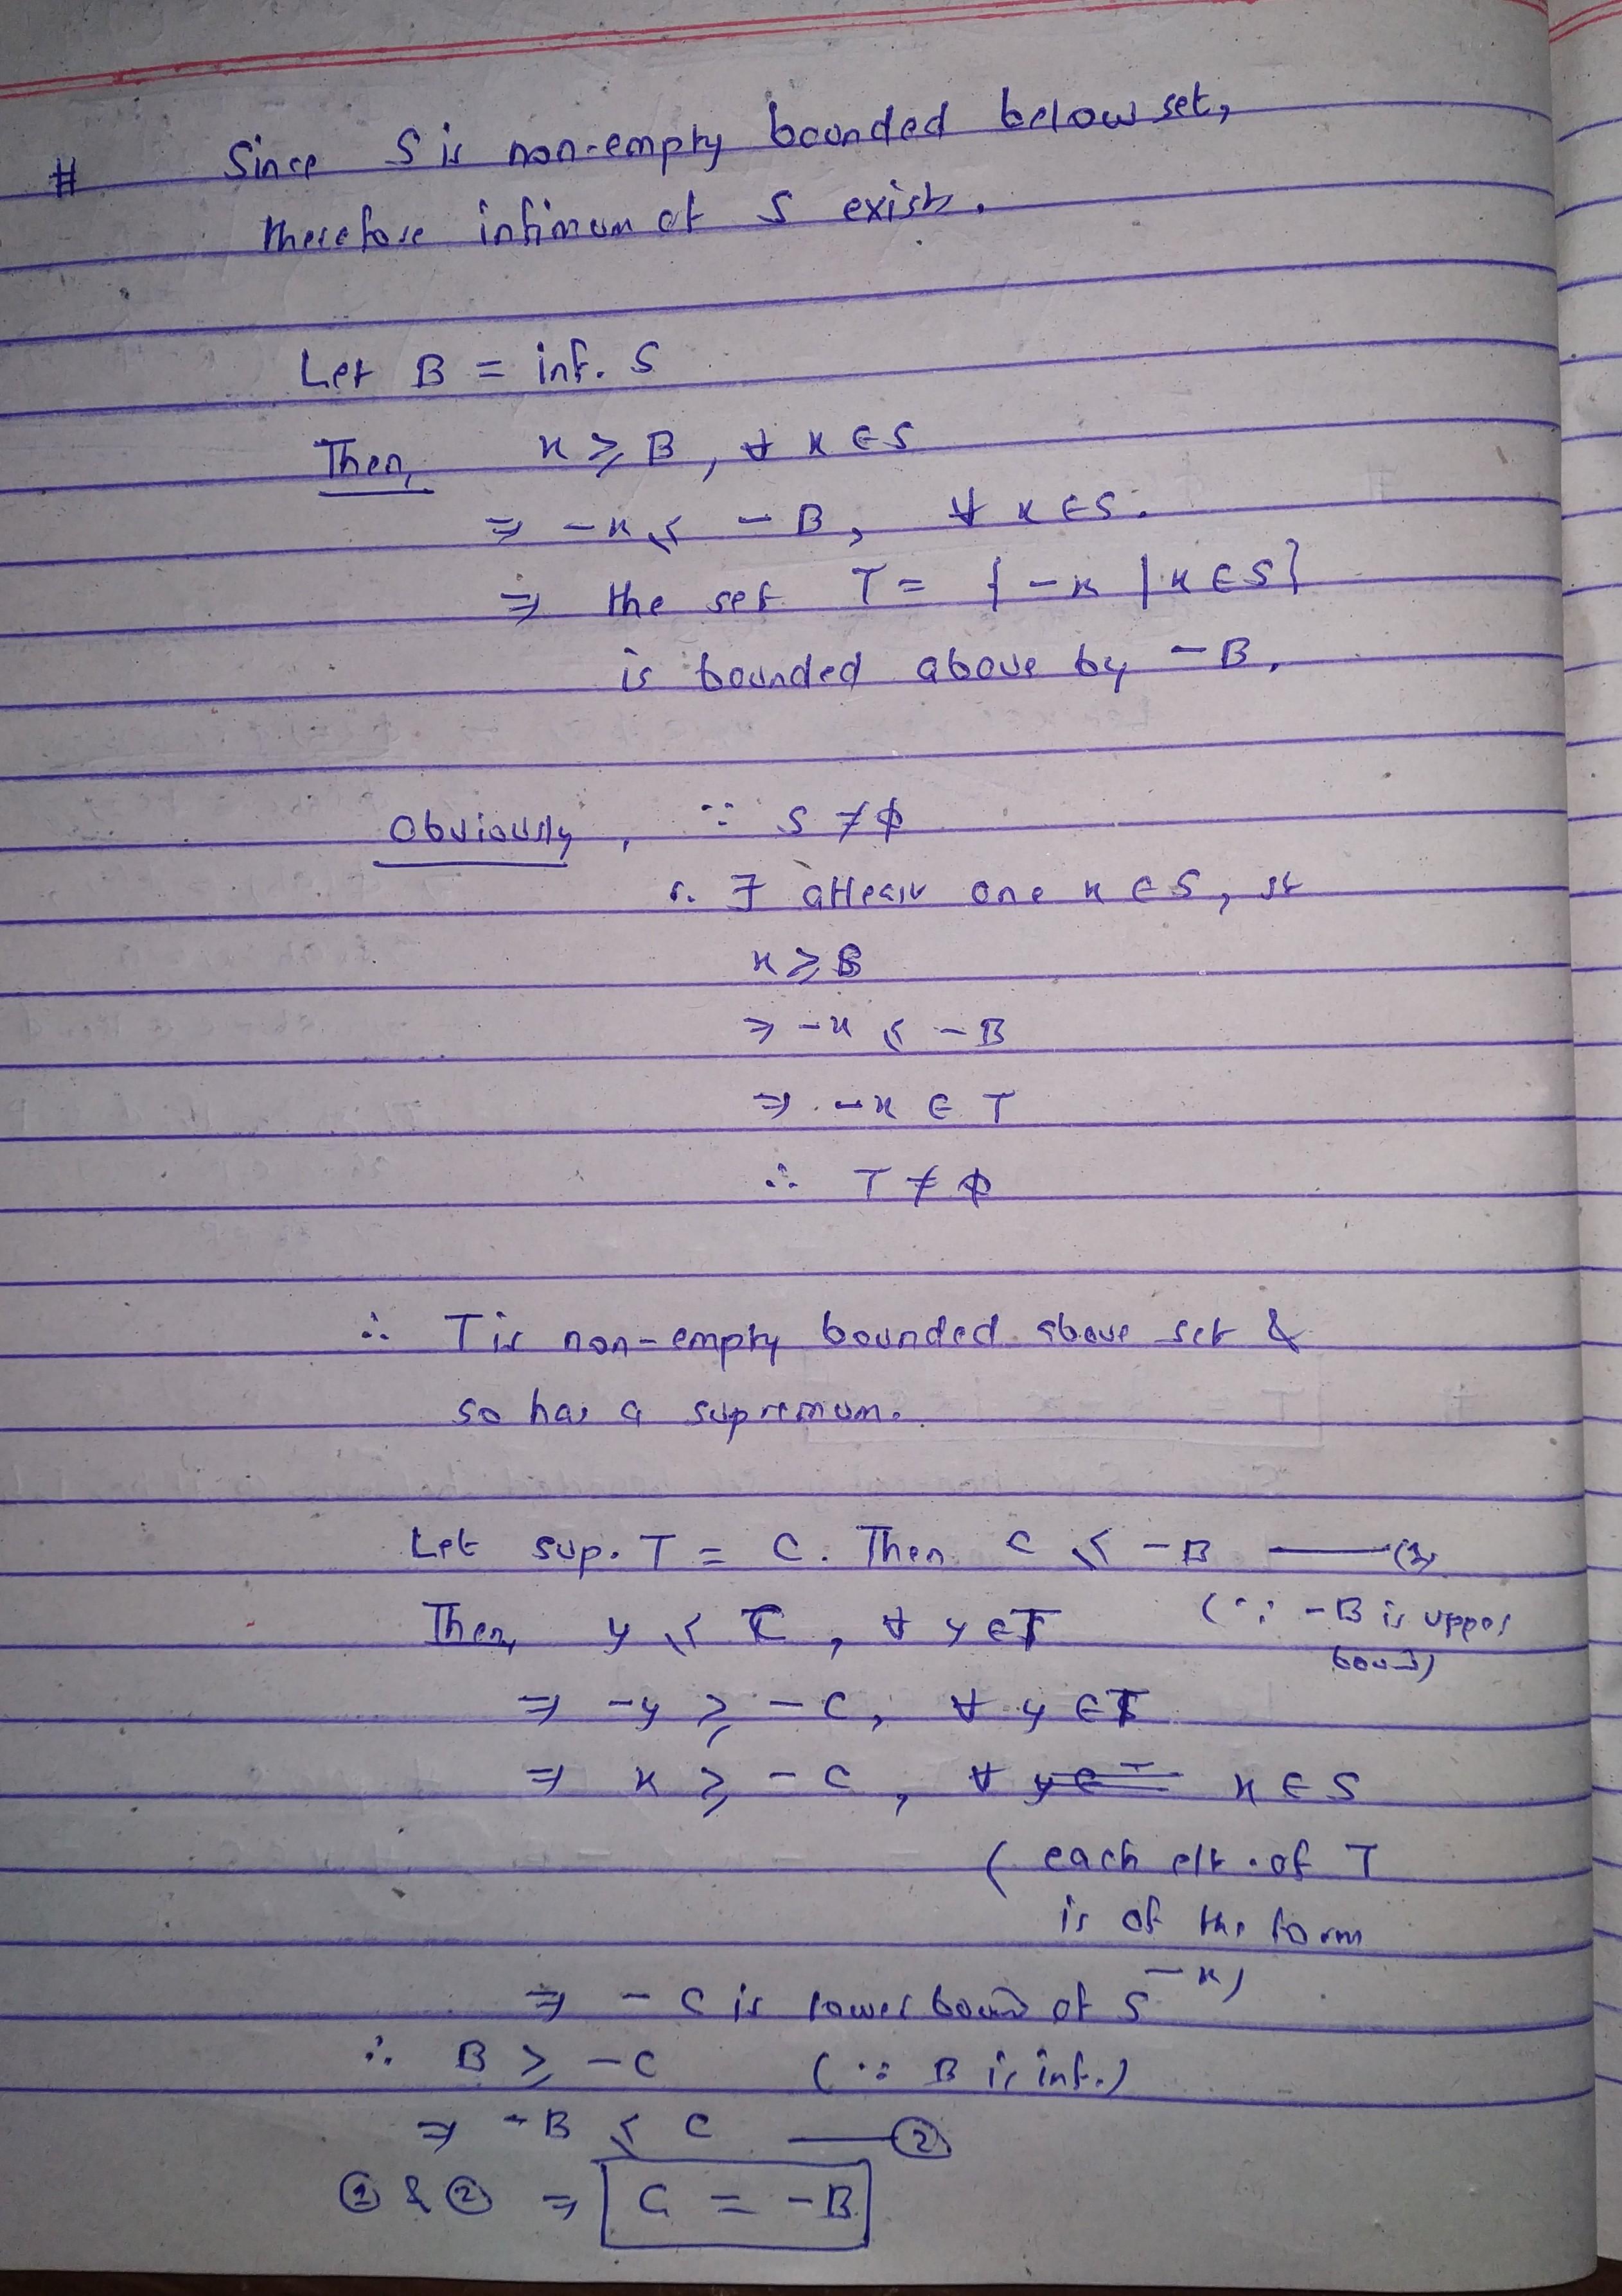 # Since S is non-empty bounded below set,
therefore infimum of S exists.
Let B = inf. S
Then, x ≥ B, ∀ x ∈ S
⇒ -x ≤ -B, ∀ x ∈ S.
⇒ the set T = { -x | x ∈ S}
is bounded above by -B.
Obviously, ∵ S ≠ ϕ
∴ ∃ atleast one x ∈ S, st
x ≥ B
⇒ -x ≤ -B
⇒ -x ∈ T
∴ T ≠ ϕ
∴ T is non-empty bounded above set &
so has a supremum.
Let sup. T = C. Then C ≤ -B —— (1)
Then, y ≤ C, ∀ y ∈ T (∵ -B is upper
bound)
⇒ -y ≥ -C, ∀ y ∈ T
⇒ x ≥ -C, ∀ y ∈ T x ∈ S
( each elt. of T
is of the form
-x)
⇒ -C is lower bound of S
∴ B ≥ -C (∵ B is inf.)
⇒ -B ≤ C —— ②
① & ② ⇒ C = -B